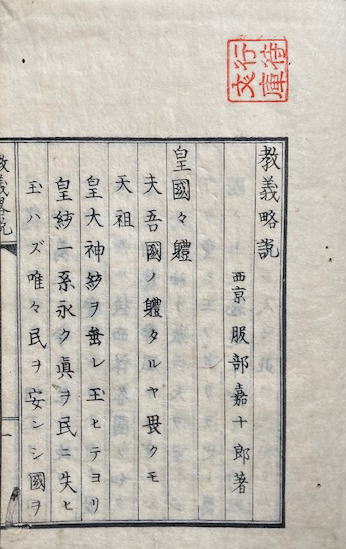 行待
文庫
教義略説
西京 服部嘉十郎著
皇國々軆
夫吾國ノ軆タルヤ畏クモ
天祖
皇大神紡ヲ垂レ玉ヒテヨリ
皇紡一系永ク眞ヲ民ニ失ヒ
玉ハズ唯々民ヲ安ンシ國ヲ
教義畧説
一